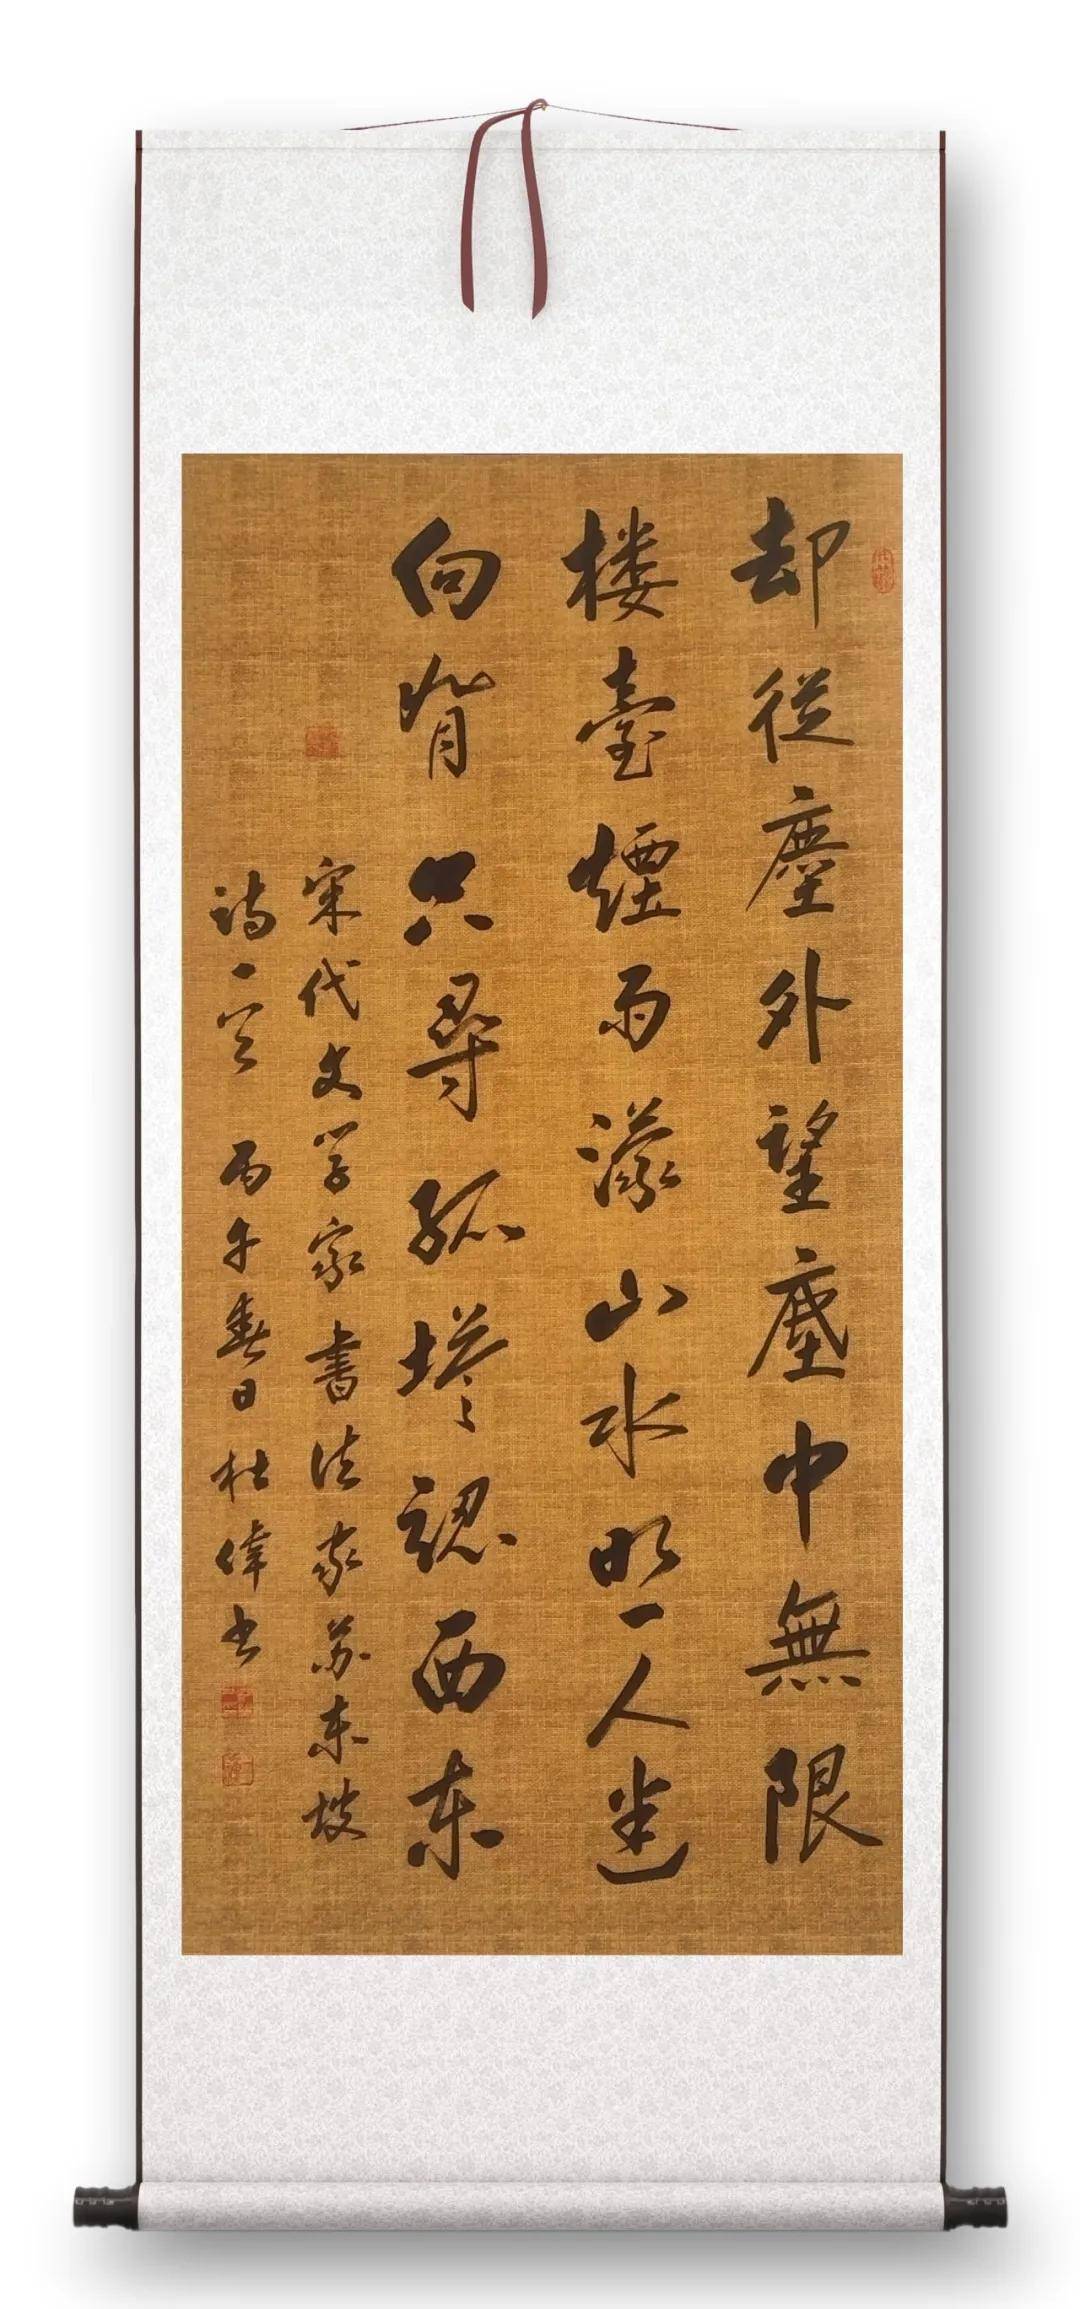 却從塵外望塵中無限
楼臺煙雨濛山水照人迷
向背只尋孤塔認西東
宋代文学家書法家苏東坡
詩一首 丙午春日杜偉书